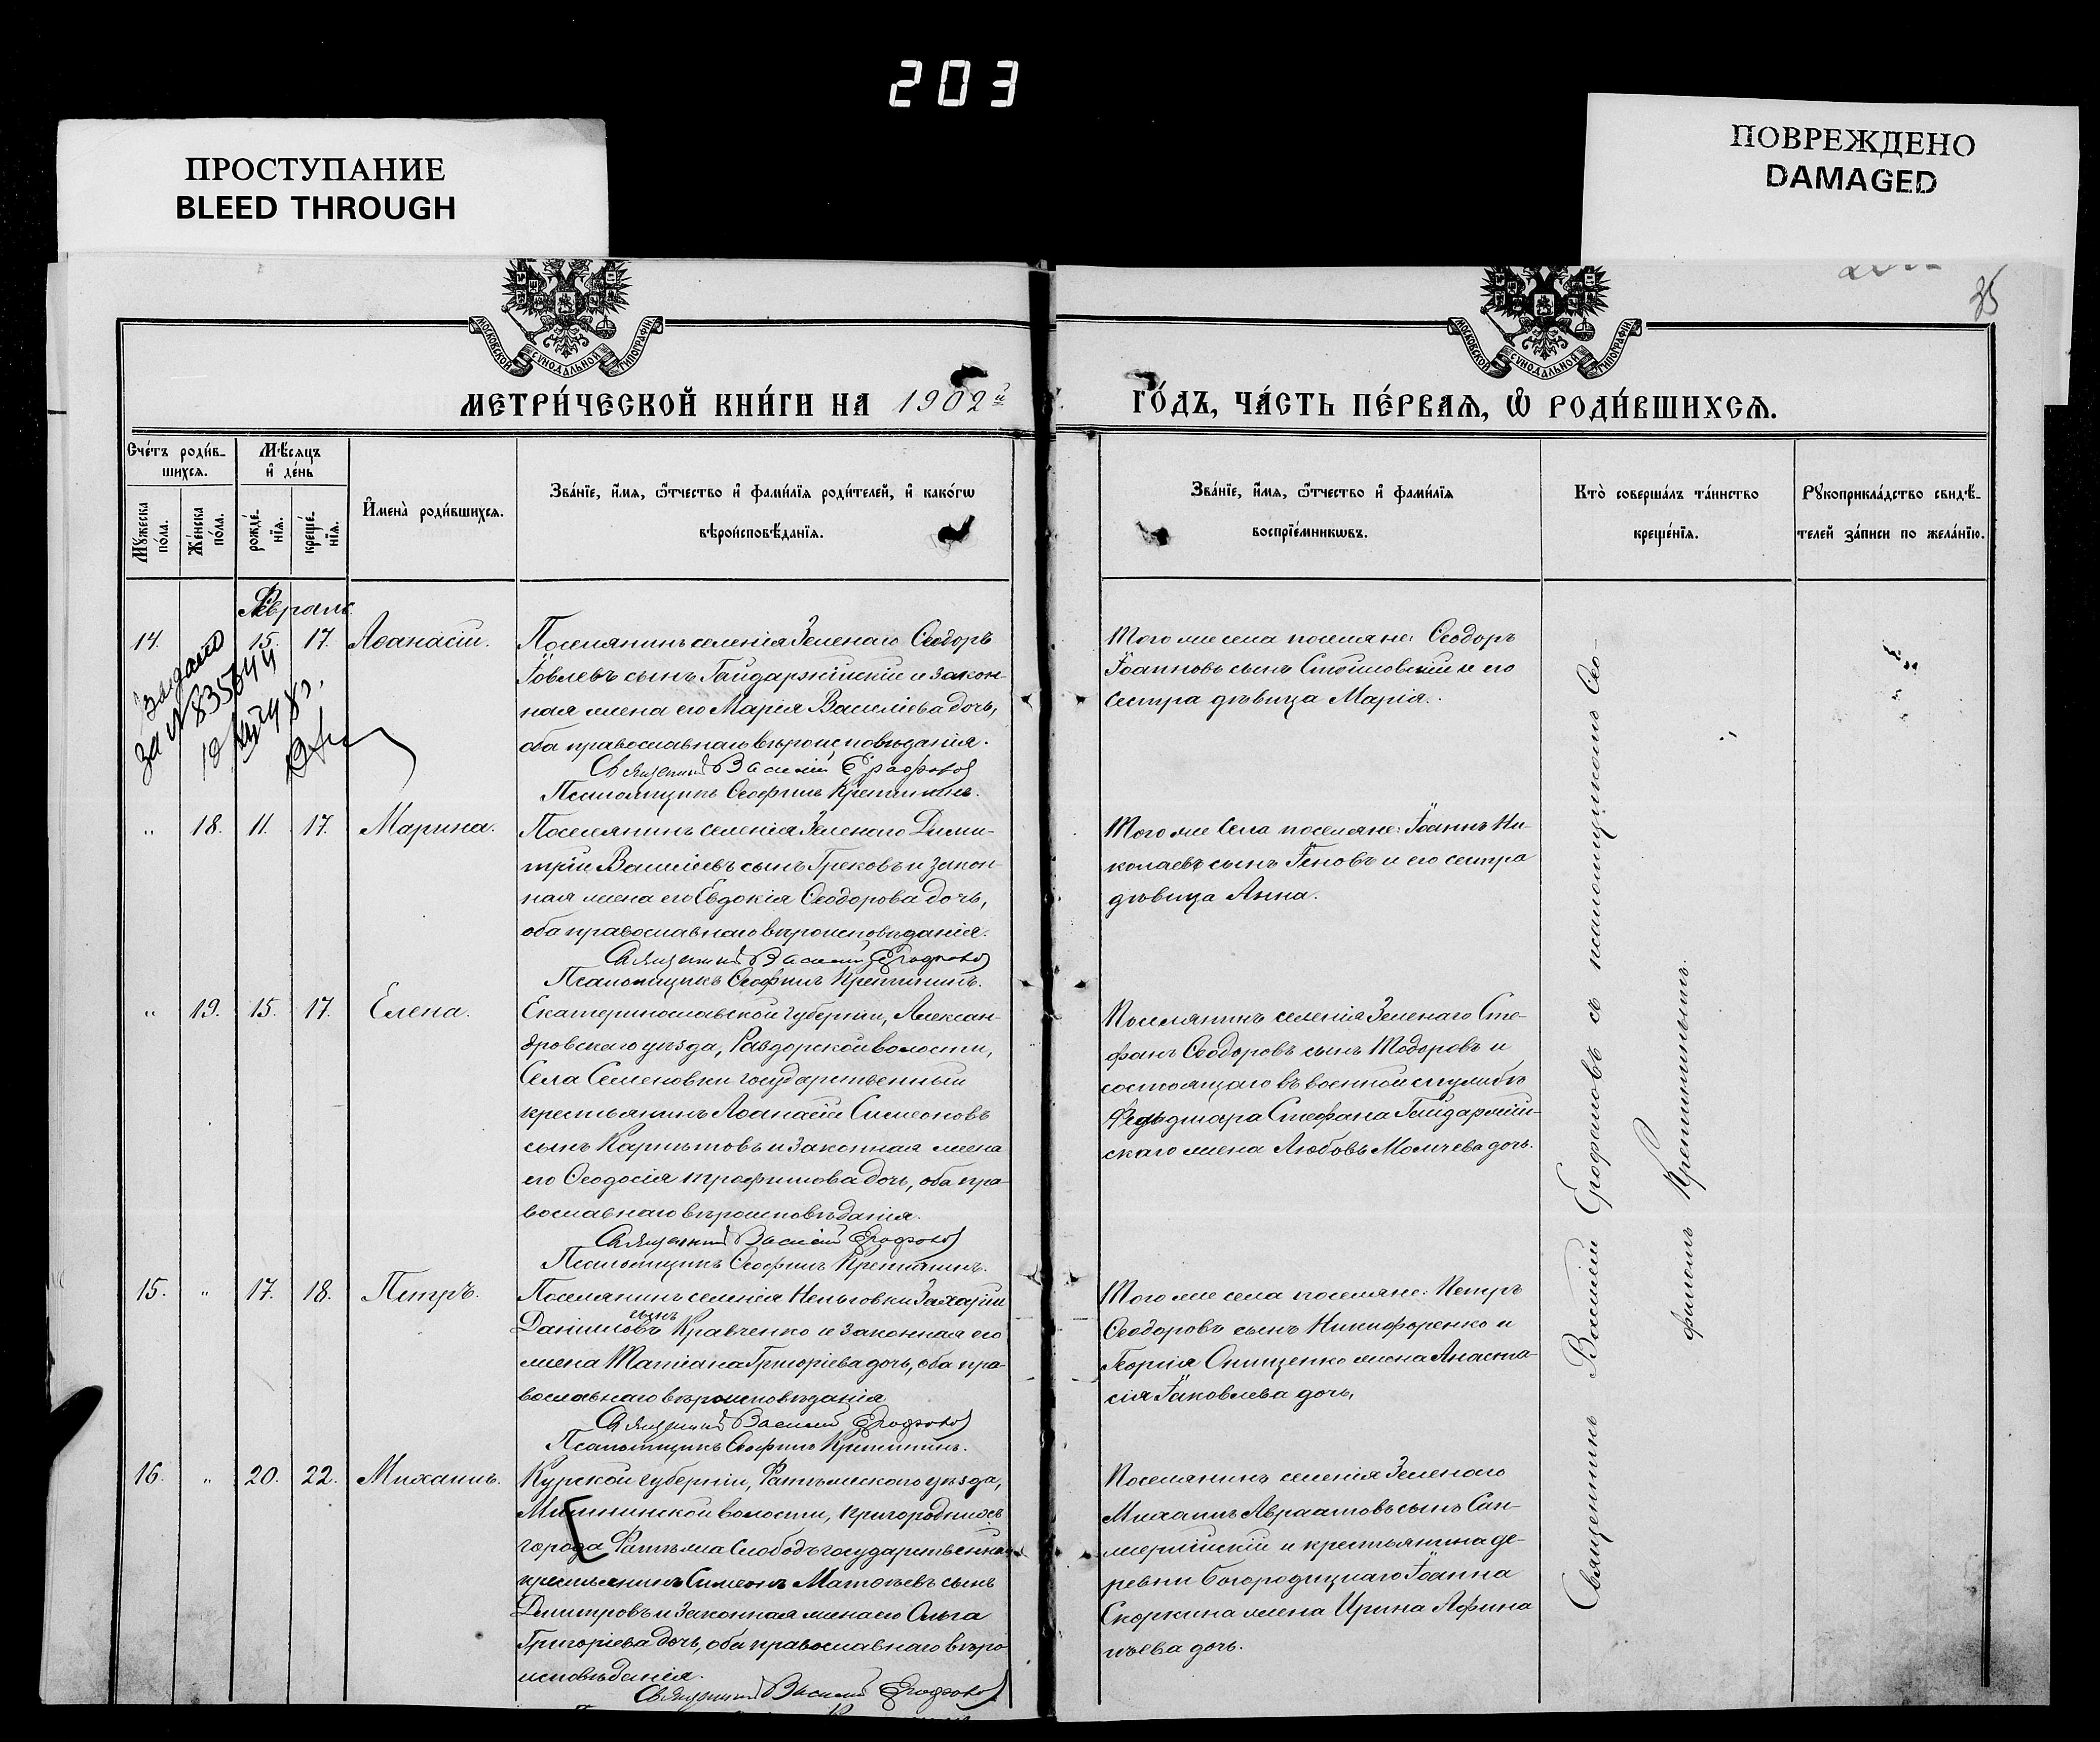 203
ПРОСТУПАНИЕ
BLEED THROUGH
ПОВРЕЖДЕНО
DAMAGED
35
МОСКОВСКОЙ СѴНОДАЛЬНОЙ ТИПОГРАФІИ
МОСКОВСКОЙ СѴНОДАЛЬНОЙ ТИПОГРАФІИ
МЕТРИ́ЧЕСКОЙ КНИ́ГИ НА 1902й
ГО́ДЪ, ЧА́СТЬ ПЕ́РВАѦ, Ѡ҆ РОДИ́ВШИХСѦ.
Сче́тъ роди́в-
шихсѧ.
Мѣ́сѧцъ
и҆ де́нь
Мꙋ́жеска
по́ла.
Же́нска
по́ла.
рожде́-
нїѧ.
креще́-
нїѧ.
И҆мена̀ роди́вшихсѧ.
Зва́нїе, и҆́мѧ, ѻ҆́тчество и҆ фами́лїѧ роди́телей, и҆ како́гѡ
вѣроисповѣ́данїѧ.
Зва́нїе, и҆́мѧ, ѻ҆́тчество и҆ фами́лїѧ
воспрїе́мникѡвъ.
Кто̀ соверша́лъ та́инство
креще́нїѧ.
Рꙋкоприкла́дство свидѣ́-
телей за́писи по жела́нїю.
Февраль
14. 15. 17. Аѳанасій.
Поселянинъ селенія Зеленаго Ѳеодоръ
Іовлевъ сынъ Гайдаржійскій и закон-
ная жена его Марія Василіева дочь,
оба православнаго вѣроисповѣданія.
Священникъ Василій Ерофеловъ
Псаломщикъ Ѳеофилъ Крепинимъ.
Того же села поселяне: Ѳеодоръ
Іоанновъ сынъ Стойловскій и его
сестра дѣвица Марія.
" 18. 11. 17. Марина.
Поселянинъ селенія Зеленаго Дими-
трій Василіевъ сынъ Грековъ и закон-
ная жена его Евдокія Ѳеодорова дочь,
оба православнаго вѣроисповѣданія.
Священникъ Василій
Псаломщикъ Ѳеофилъ
Того же села поселяне: Іоаннъ Ни-
колаевъ сынъ Геновъ и его сестра
дѣвица Анна.
" 19. 15. 17. Елена.
Екатеринославской губерніи, Алексан-
дровскаго уѣзда, Раздорской волости,
села Семеновки государственный
крестьянинъ Аѳанасій Симеоновъ
сынъ и законная жена
его Ѳеодосія Трофимова дочь, оба пра-
вославнаго вѣроисповѣданія.
Священникъ Василій
Псаломщикъ Ѳеофилъ
Поселянинъ селенія Зеленаго Сте-
фанъ Ѳеодоровъ сынъ Тодоровъ и
состоящаго въ военной службѣ
Стефана Гайдаржій-
скаго жена Любовь дочь.
15. " 17. 18. Петръ.
Поселянинъ селенія Нельговки Захарій
Даніиловъ сынъ Кравченко и законная его
жена Татіана Григоріева дочь, оба пра-
вославнаго вѣроисповѣданія
Священникъ Василій
Псаломщикъ Ѳеофилъ
Того же села поселяне: Петръ
Ѳеодоровъ сынъ Никифоренко и
Георгія Онищенко жена Анаста-
сія Іаковлева дочь.
16. " 20. 22. Михаилъ.
Курской губерніи, Фатежскаго уѣзда,
волости, пригородныхъ
города Фатежа Слободъ государственный
крестьянинъ Симеонъ Матѳеевъ сынъ
Дмитровъ и законная жена его Ольга
Григоріева дочь, оба православнаго вѣро-
исповѣданія.
Священникъ Василій
Поселянинъ селенія Зеленаго
Михаилъ Авраамовъ сынъ Сан-
жерійскій и крестьянина де-
ревни Богородицкаго Іоанна
Скоркина жена Ирина
дочь.
Священникъ Василій съ псаломщикомъ Ѳео-
филомъ